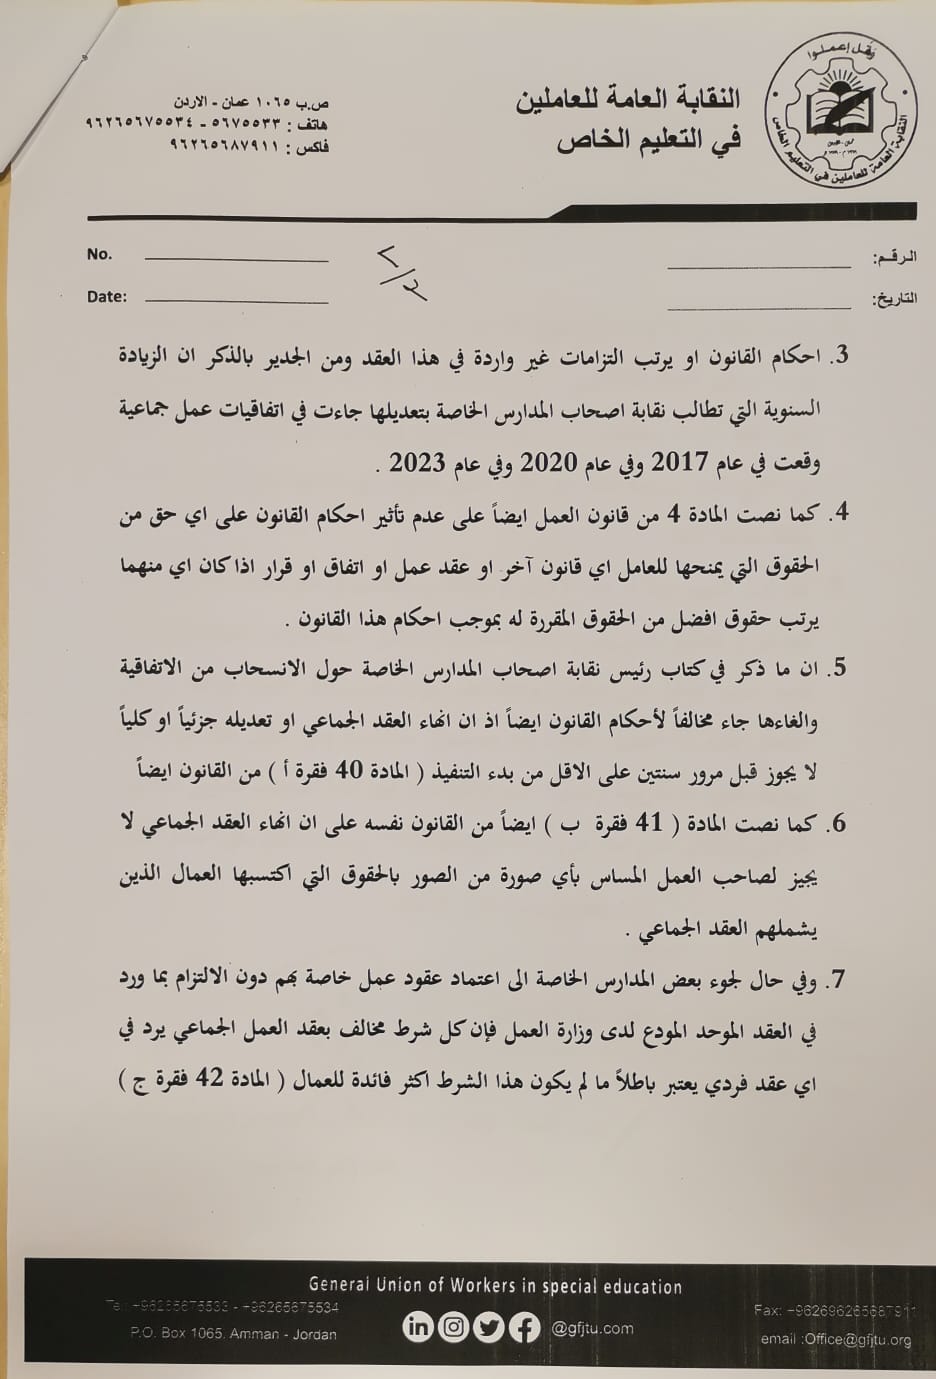 وقل إعملوا
النقابة العامة للعاملين في التعليم الخاص
النقابة العامة للعاملين
في التعليم الخاص
ص.ب ١٠٦٥ عمان - الاردن
هاتف : ٥٦٧٥٥٣٣ - ٩٦٢٦٥٦٧٥٥٣٤
فاكس : ٩٦٢٦٥٦٨٧٩١١
الرقم:
No.
التاريخ:
Date:
3. احكام القانون او يرتب التزامات غير واردة في هذا العقد ومن الجدير بالذكر ان الزيادة
السنوية التي تطالب نقابة اصحاب المدارس الخاصة بتعديلها جاءت في اتفاقيات عمل جماعية
وقعت في عام 2017 وفي عام 2020 وفي عام 2023 .
4. كما نصت المادة 4 من قانون العمل ايضاً على عدم تأثير احكام القانون على اي حق من
الحقوق التي يمنحها للعامل اي قانون آخر او عقد عمل او اتفاق او قرار اذا كان اي منهما
يرتب حقوق افضل من الحقوق المقررة له بموجب احكام هذا القانون .
5. ان ما ذكر في كتاب رئيس نقابة اصحاب المدارس الخاصة حول الانسحاب من الاتفاقية
والغاءها جاء مخالفاً لأحكام القانون ايضاً اذ ان انهاء العقد الجماعي او تعديله جزئياً او كلياً
لا يجوز قبل مرور سنتين على الاقل من بدء التنفيذ ( المادة 40 فقرة أ ) من القانون ايضاً
6. كما نصت المادة ( 41 فقرة ب ) ايضاً من القانون نفسه على ان انهاء العقد الجماعي لا
يجيز لصاحب العمل المساس بأي صورة من الصور بالحقوق التي اكتسبها العمال الذين
يشملهم العقد الجماعي .
7. وفي حال لجوء بعض المدارس الخاصة الى اعتماد عقود عمل خاصة بهم دون الالتزام بما ورد
في العقد الموحد المودع لدى وزارة العمل فإن كل شرط مخالف بعقد العمل الجماعي يرد في
اي عقد فردي يعتبر باطلاً ما لم يكون هذا الشرط اكثر فائدة للعمال ( المادة 42 فقرة ج )
General Union of Workers in special education
Tel: +96265675533 - +96265675534
P.O. Box 1065, Amman - Jordan
@gfjtu.com
Fax: +962696265687911
email :Office@gfjtu.org